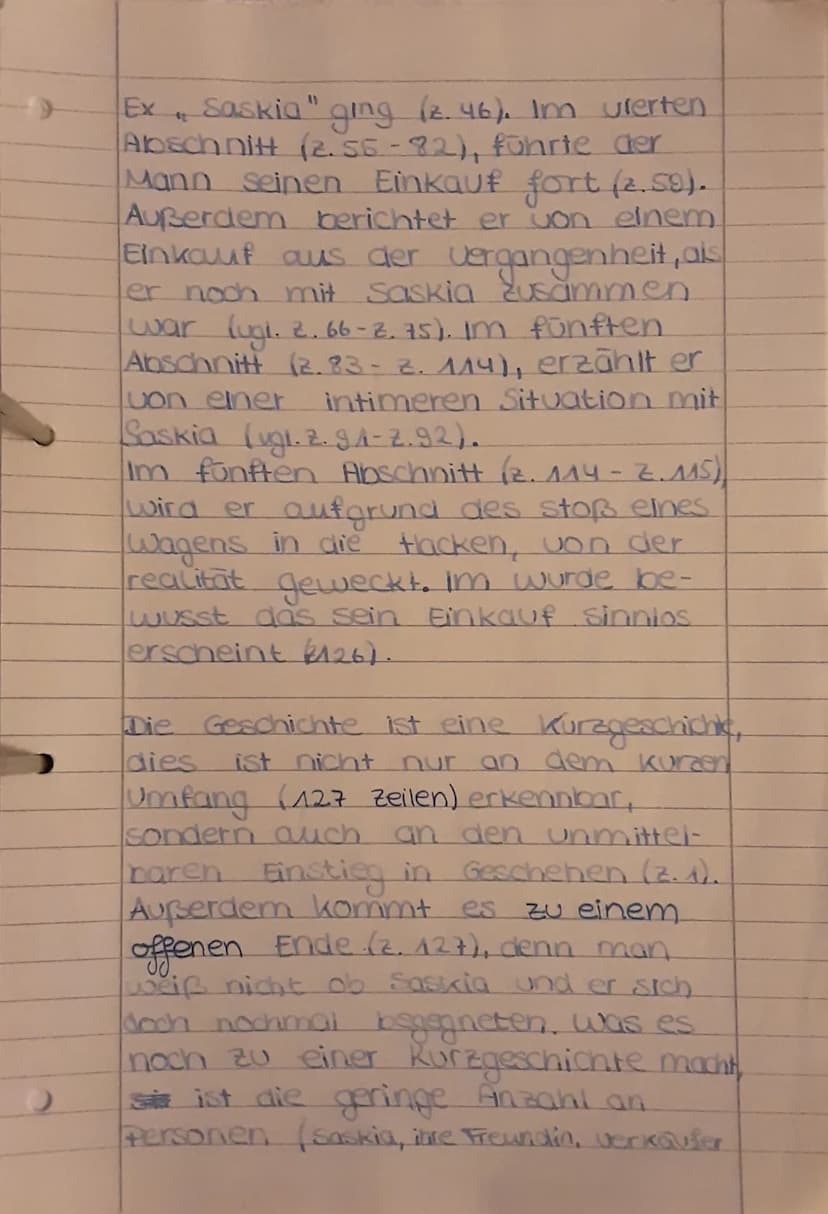 Ex „Saskia" ging (z. 46). Im vierten
Abschnitt (z. 56 - 82), führte der
Mann seinen Einkauf fort (z. 59).
Außerdem berichtet er von einem
Einkauf aus der Vergangenheit, als
er noch mit Saskia zusammen
war (vgl. z. 66 - z. 75). Im fünften
Abschnitt (z. 83 - z. 114), erzählt er
von einer intimeren Situation mit
Saskia (vgl. z. 91 - z. 92).
Im fünften Abschnitt (z. 114 - z. 115),
wird er aufgrund des stoß eines
Wagens in die Hacken, von der
realität geweckt. Im wurde be-
wusst das sein Einkauf sinnlos
erscheint (z126).
Die Geschichte ist eine Kurzgeschichte,
dies ist nicht nur an dem kurzen
Umfang (127 Zeilen) erkennbar,
sondern auch an den unmittel-
baren Einstieg in Geschehen (z. 1).
Außerdem kommt es zu einem
offenen Ende (z. 127), denn man
weiß nicht ob Saskia und er sich
doch nochmal begegneten. Was es
noch zu einer Kurzgeschichte macht,
ist die geringe Anzahl an
Personen (Saskia, ihre Freundin, Verkäufer